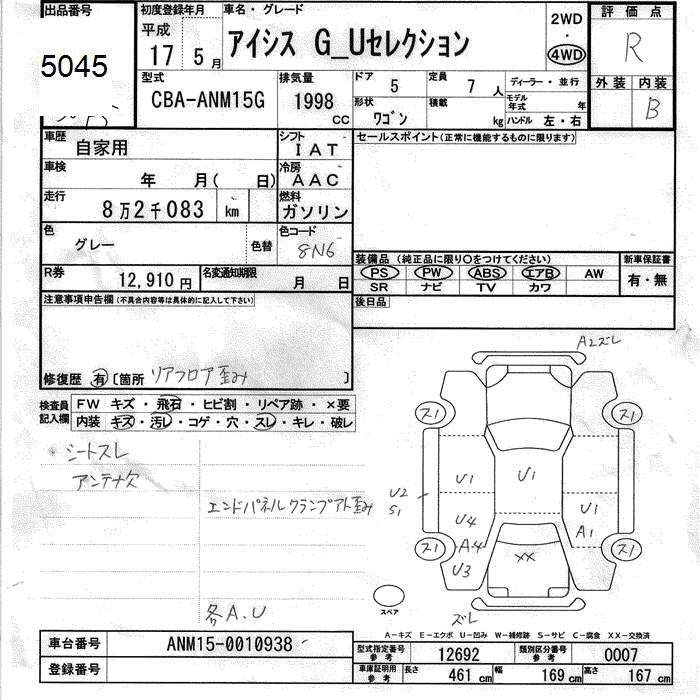 出品番号
5045
初度登録年月
平成
17 5 月
車名・グレード
アイシス G_Uセレクション
2WD
・
4WD
評価点
R
外装 内装
B
型式
CBA-ANM15G
排気量
1998 cc
ドア 5
定員 7 人
ディーラー・並行
形状 ワゴン
積載 kg
モデル年式 年
ハンドル 左・右
車歴
自家用
シフト
IAT
車検
年 月( 日)
冷房
AAC
走行
8万2千083 km
燃料
ガソリン
色
グレー
色替
色コード
8N6
R券
12,910 円
名変通知期限
月 日
セールスポイント(正常に機能するものに限ります)
装備品 (純正品に限り○をつけてください)
新車保証書
PS PW ABS エアB AW
SR ナビ TV カワ
有・無
後日品
注意事項申告欄(不具合内容等は具体的に記入して下さい)
修復歴 有 〔箇所 リアフロア歪み 〕
検査員
記入欄
FW キズ・飛石・ヒビ割・リペア跡・×要
内装・キズ・汚レ・コゲ・穴・スレ・キレ・破レ
シートスレ
アンテナ欠
エンドパネルクランプアト歪み
各A.U
A2ズレ
ス1
ス1
U1
U1
U2
S1
U4
U1
A1
ス1
A4
XX
ス1
U3
スペア
ズレ
A-キズ E-エクボ U-凹み W-補修跡 S-サビ C-腐食 XX-交換済
車台番号
ANM15-0010938
登録番号
型式指定番号
参考
12692
類別区分番号
参考
0007
車庫証明用
参考
長さ 461 cm
幅 169 cm
高さ 167 cm